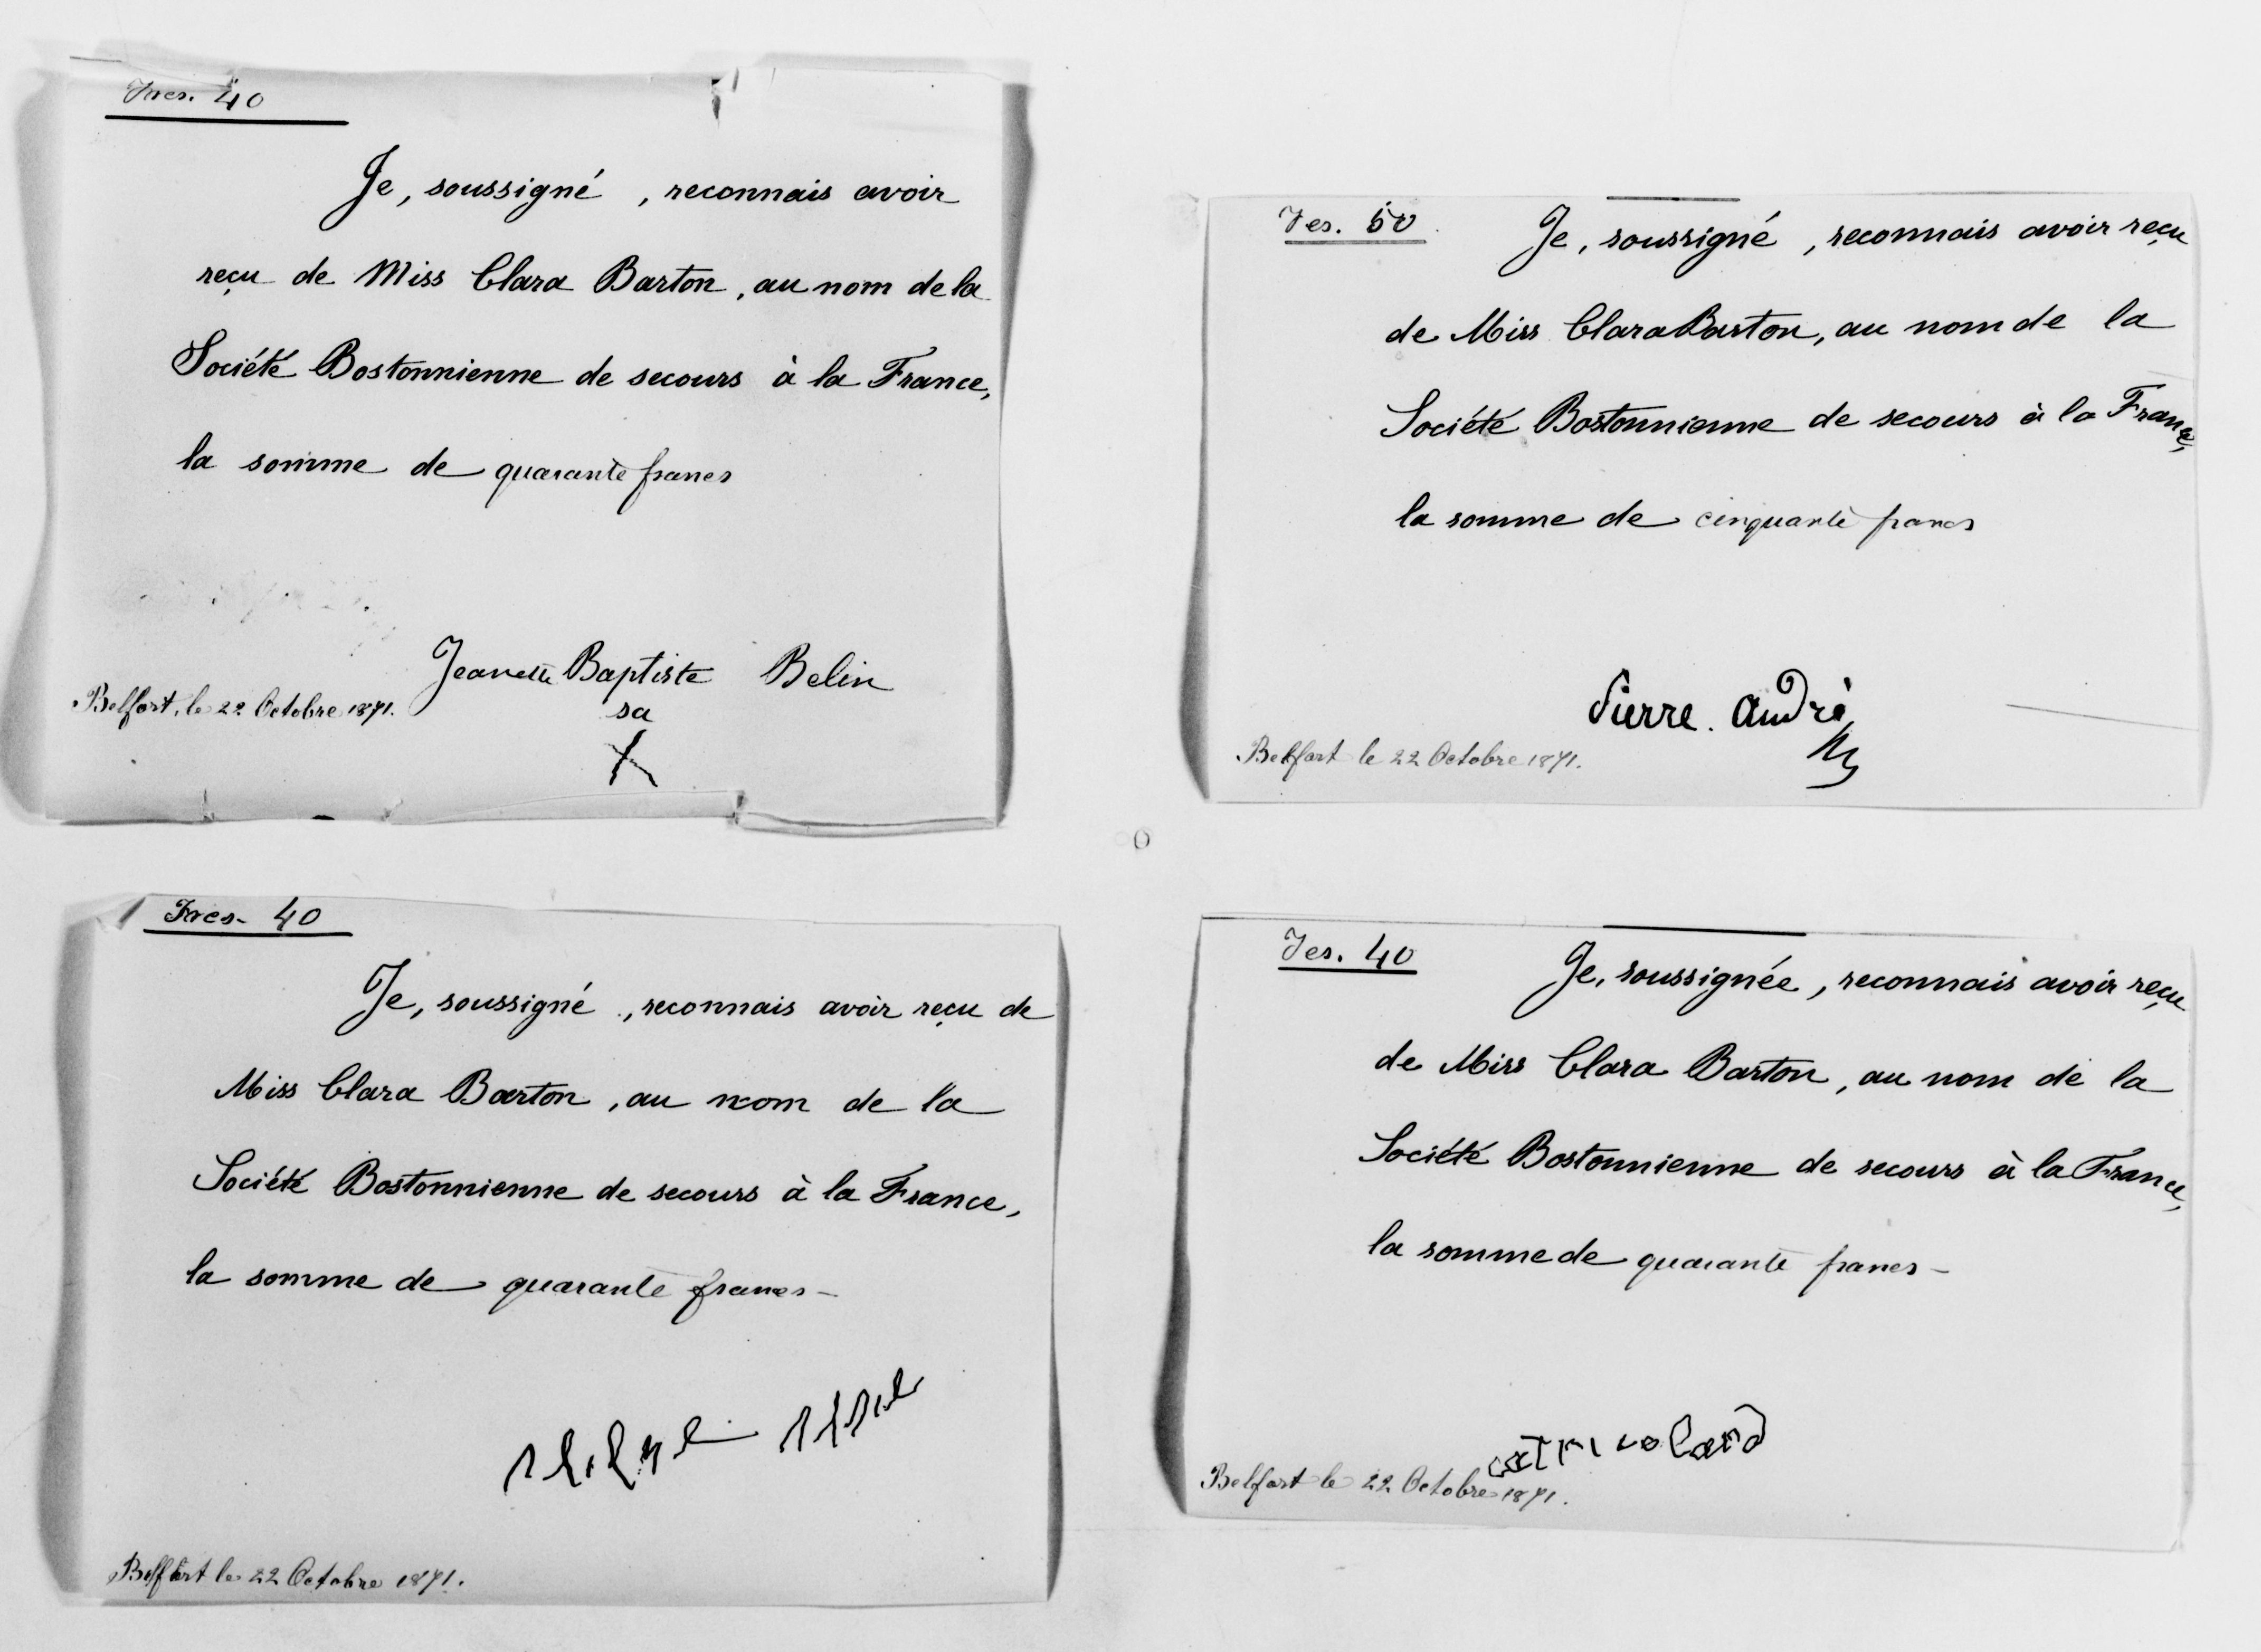 Frcs. 40
Je, soussigné , reconnais avoir
reçu de Miss Clara Barton, au nom de la
Société Bostonnienne de secours à la France,
la somme de quarante francs
Jeanette Baptiste Belin
sa
X
Belfort, le 22 Octobre 1871.
Fcs. 50
Je, soussigné , reconnais avoir reçu
de Miss Clara Barton, au nom de la
Société Bostonnienne de secours à la France,
la somme de cinquante francs
Pierre. andré
Belfort le 22 Octobre 1871.
Frcs. 40
Je, soussigné , reconnais avoir reçu de
Miss Clara Barton, au nom de la
Société Bostonnienne de secours à la France,
la somme de quarante francs-
Belfort le 22 Octobre 1871.
Fcs. 40
Je, soussignée, reconnais avoir reçu
de Miss Clara Barton, au nom de la
Société Bostonnienne de secours à la France,
la somme de quarante francs-
Belfort le 22 Octobre 1871.